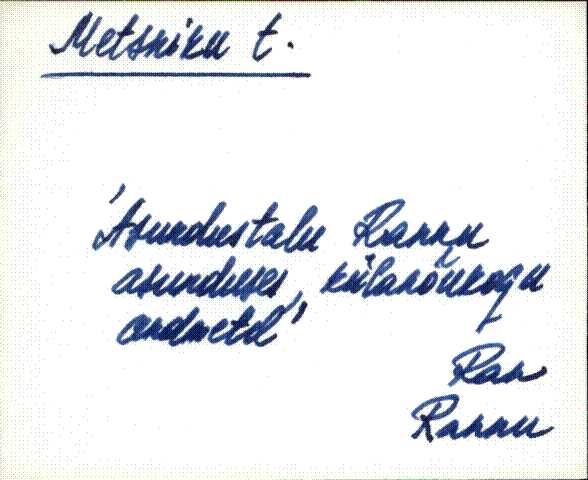 Metsniku t.
'Asundustalu Rannu
asunduses, külanõukogu
andmetel'
Ran
Rannu